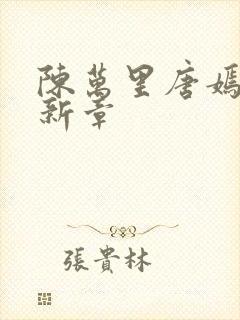 陳萬里唐嫣
新章
張貴林